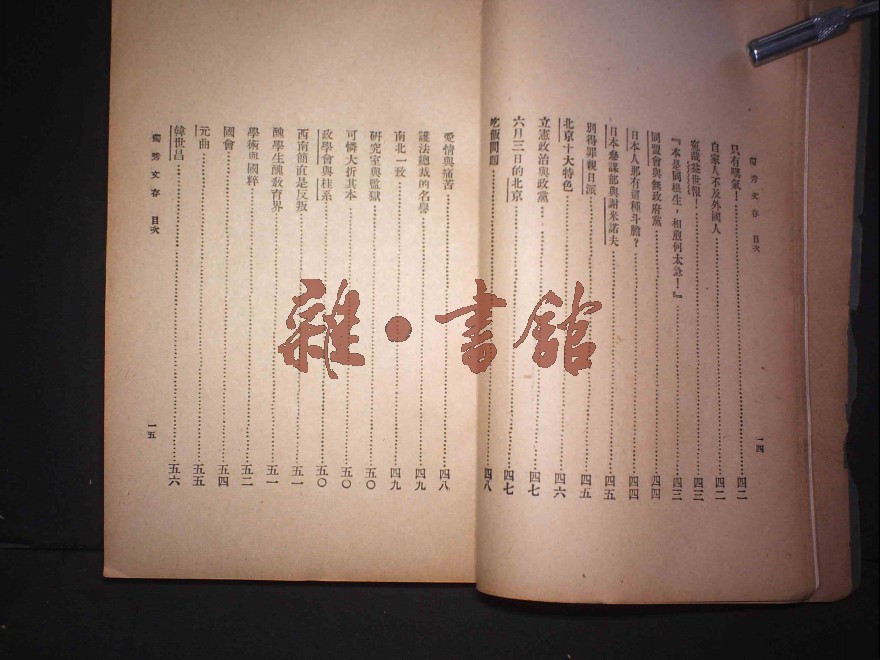 獨秀文存 目次
一四
只有嘆氣！……四二
自家人不及外國人……四二
冤哉益世報！……四三
『本是同根生，相煎何太急！』……四三
同盟會與無政府黨……四四
日本人那有這種斗膽？……四四
日本參謀部與謝米諾夫……四五
別得罪親日派……四五
北京十大特色……四六
立憲政治與政黨……四七
六月三日的北京……四七
吃飯問題……四八
愛情與痛苦……四八
護法總裁的名譽……四九
南北一致……四九
研究室與監獄……五〇
可憐大折其本……五〇
政學會與桂系……五〇
西南簡直是反叛……五一
醜學生醜教育界……五一
學術與國粹……五二
國會……五四
元曲……五五
韓世昌……五六
獨秀文存 目次
一五
雜·書館